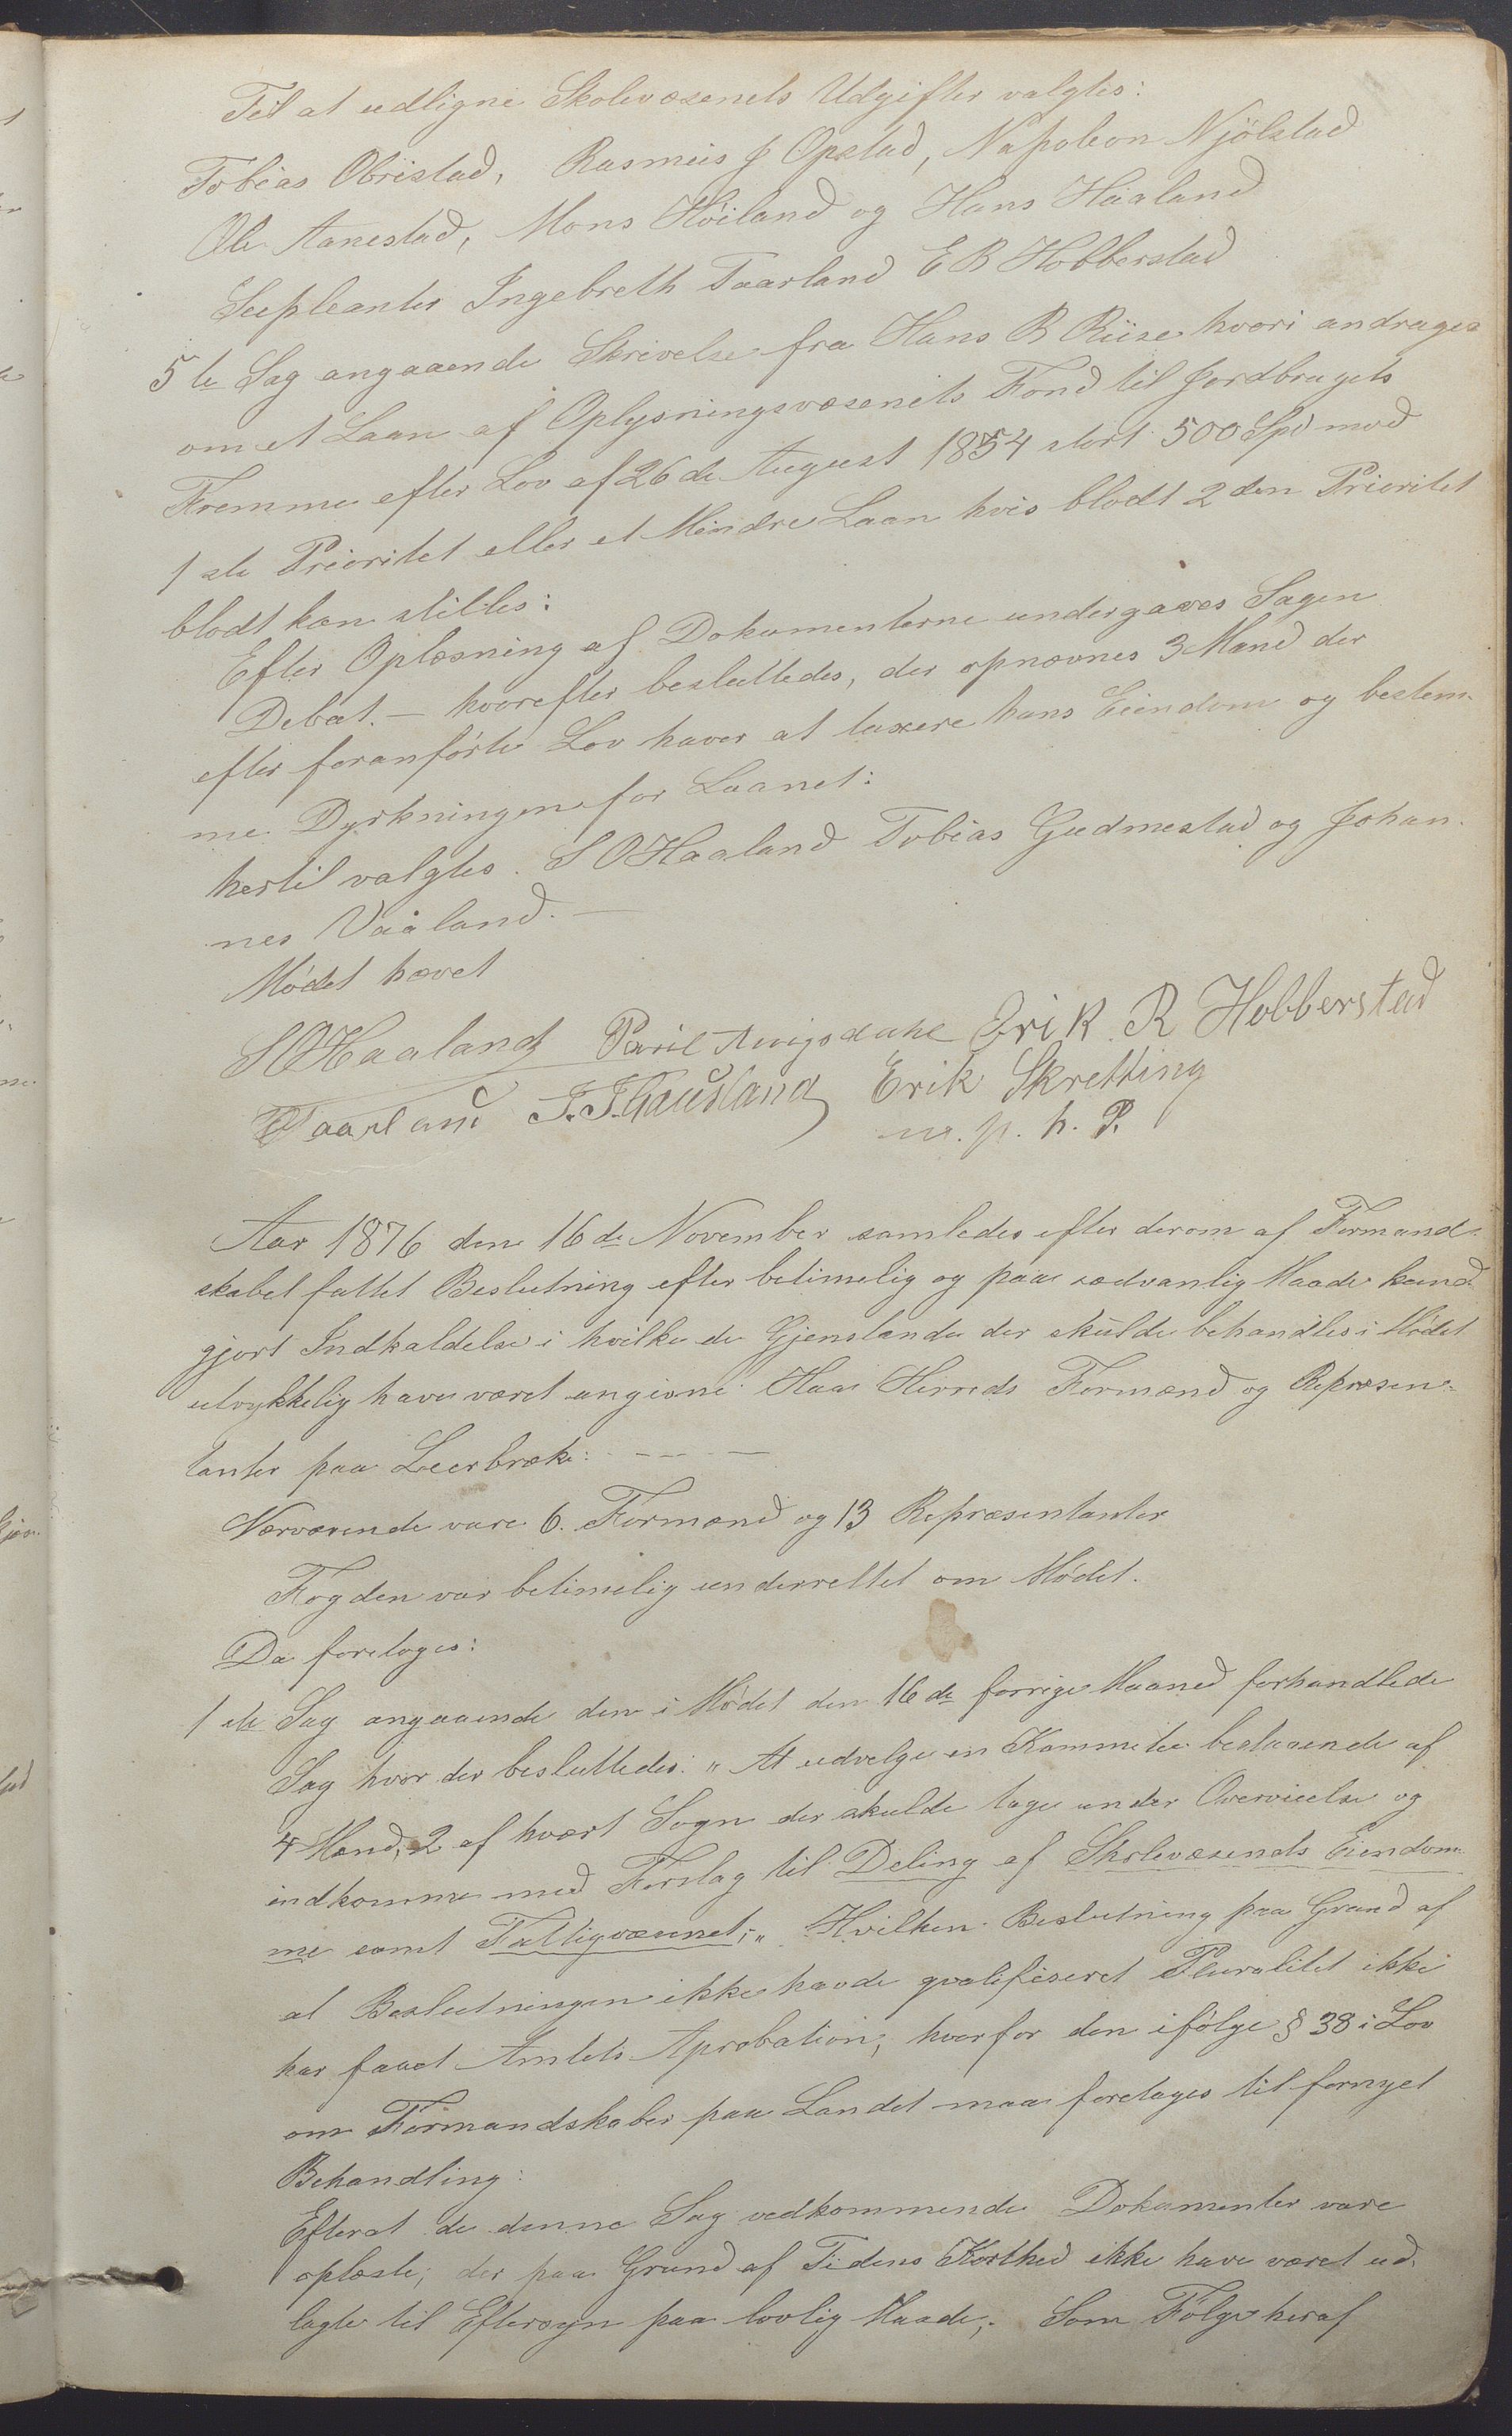 Til at udligne Skolevæsenets Udgifter valgtes:
Tobias Obrestad, Rasmus J Opstad, Napoleon Njölstad
Ole Aanestad, Mons Höiland og Hans Haaland
Supleanter Ingebreth Taarland E R Hobberstad
5te Sag angaaende Skrivelse fra Hans R Riise hvori andrages
om et Laan af Oplysningsvæsenets Fond til Jordbrugets
Fremme efter Lov af 26de August 1854 stort 500 Spd mod
1ste Prioritet eller et Mindre Laan hvis blodt 2den Prioritet
blodt kan stilles:
Efter Oplæsning af Dokumenterne undergaves Sagen
Debat. — hvorefter besluttedes, der opnævnes 3 Mand der
efter foranförte Lov haver at taxere hans Eiendom og bestem-
me Dyrkningen for Laanet:
hertil valgtes. S O Haaland Tobias Gudmestad og Johan-
nes Vaaland. —
Mödet hævet
S O Haaland Erik R Hobberstad
Taarland Erik Skretting
m. p. h. P.
Aar 1876 den 16de November samledes efter derom af Formand-
skabet fattet Beslutning efter betimelig og paa sædvanlig Maade kund-
gjort Indkaldelse i hvilke de Gjenstande der skulde behandles i Mödet
udrykkelig have været angivne Haa Herreds Formænd og Repræsen-
tanter paa Leerbræk: - - - —
Nærværende vare 6. Formænd og 13 Repræsentanter
Fogden var betimelig underrettet om Mödet.
Da foretoges:
1ste Sag angaaende den i Mödet den 16de forrige Maaned forhandlede
Sag hvor der besluttedes: "At udvelge en Kommitee bestaaende af
4 Mænd, 2 af hvert Sogn der skulde tage under Overveielse og
indkomme med Forslag til Deling af Skolevæsenets Eiendom-
me samt Fattigvæsenet;" Hvilken Beslutning paa Grund af
at Beslutningen ikke havde qvalifiseret Pluralitet ikke
har faaet Amtets Aprobation; hvorfor den ifölge § 38 i Lov
om Formandskaber paa Landet maa foretages til fornyet
Behandling:
Efterat de denne Sag vedkommende Dokumenter vare
oplæste; der paa Grund af Tidens Korthed ikke have været ud-
lagte til Eftersyn paa lovlig Maade; Som Fölge heraf